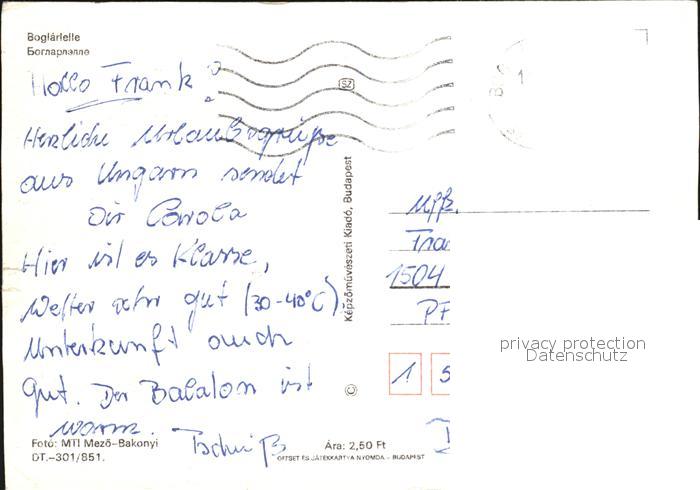 Boglárlelle
Богларлелле
Hallo Frank!
Herzliche Urlaubsgrüße
aus Ungarn sendet
Dir Carola
Hier ist es Klasse,
Wetter sehr gut (30-40°C),
Unterkunft auch
gut. Der Balaton ist
warm.
Tschüß
Foto: MTI Mező-Bakonyi
DT.-301/851.
Ára: 2,50 Ft
OFFSET ÉS JÁTÉKKÁRTYA NYOMDA - BUDAPEST
© Képzőművészeti Kiadó, Budapest
SZ
Uffz.
Fra
1504
PF
1 5
privacy protection
Datenschutz